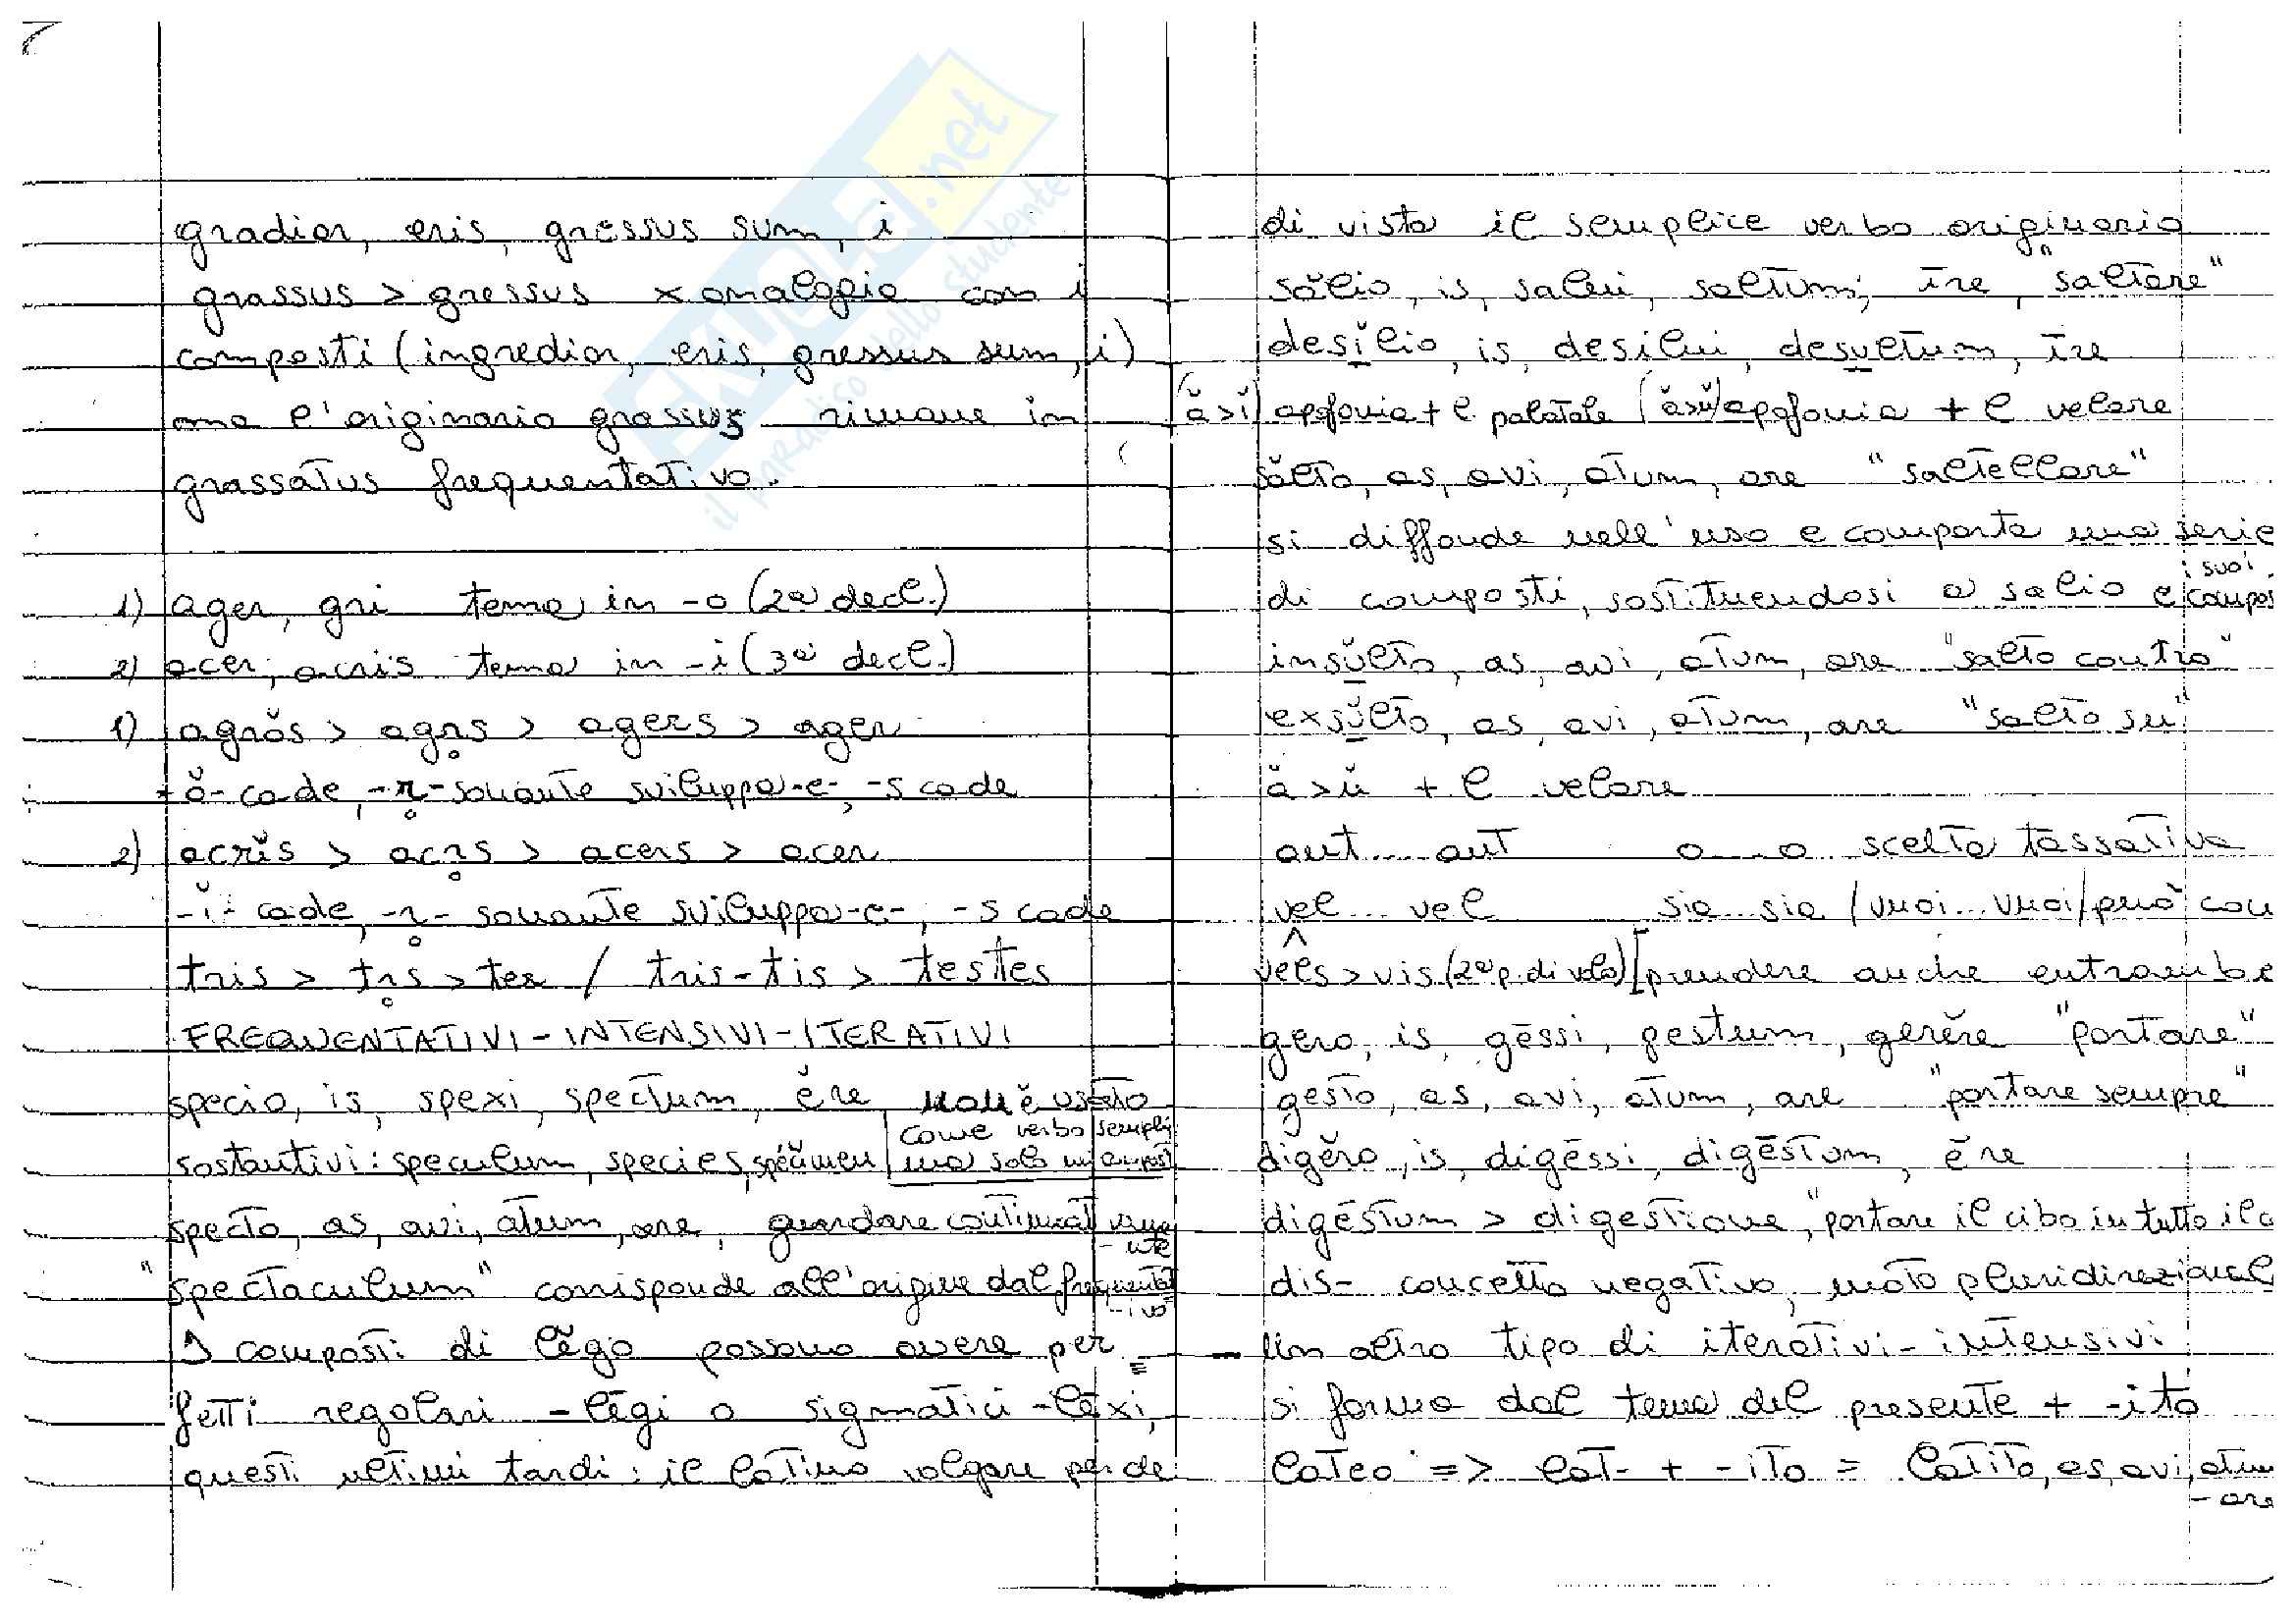 gradior, eris, gressus sum, i
grassus > gressus x analogia con i
composti (ingredior, eris, gressus sum, i)
ma l'originario grassus rimane in
grassatus frequentativo.
1) ager, gri tema in -o (2ª decl.)
2) acer, acris tema in -i (3ª decl.)
1) agrŏs > agr̥s > agers > ager
-ŏ- cade, -r̥- sonante sviluppa -e-, -s cade
2) acrĭs > acr̥s > acers > acer
-ĭ- cade, -r̥- sonante sviluppa -e-, -s cade
tris > tr̥s > ter / tris-tis > testes
FREQUENTATIVI - INTENSIVI - ITERATIVI
specio, is, spexi, spectum, ĕre, non è usato
come verbo sempli
sostantivi: speculum, species, specimen ma solo nei compost
specto, as, avi, atum, are, guardare continuativame
-nte
"spectaculum" corrisponde all'origine dal frequentat
-ivo
I composti di lĕgo possono avere per
fetti regolari -lēgi o sigmatici -lēxi,
questi ultimi tardi: il latino volgare perde
di vista il semplice verbo originario
sălio, is, salui, saltum, īre, "saltare"
desĭlio, is, desilui, desultum, īre
(ă>ĭ) apofonia + l palatale (ă>ŭ) apofonia + l velare
sălto, as, avi, atum, are "saltellare"
si diffonde nell'uso e comporta una serie
di composti, sostituendosi a salio e i suoi compos
insŭlto, as, avi, atum, are "salto contro"
exsŭlto, as, avi, atum, are "salto su"
ă>ŭ + l velare
aut... aut o...o scelta tassativa
vel... vel sia... sia / vuoi... vuoi / può con
vels > vis (2ª p. di volo) [prendere anche entrambe
gero, is, gessi, gestum, gerĕre "portare"
gesto, as, avi, atum, are "portare sempre"
digĕro, is, digēssi, digēstum, ĕre
digēstum > digestione, "portare il cibo in tutto il c
dis- concetto negativo, moto pluridirezional
- Un altro tipo di iterativi-intensivi
si forma dal tema del presente + -ito
lateo => lat- + -ito = latito, as, avi, atum
-are
SKUOLA.net
il paradiso dello studente